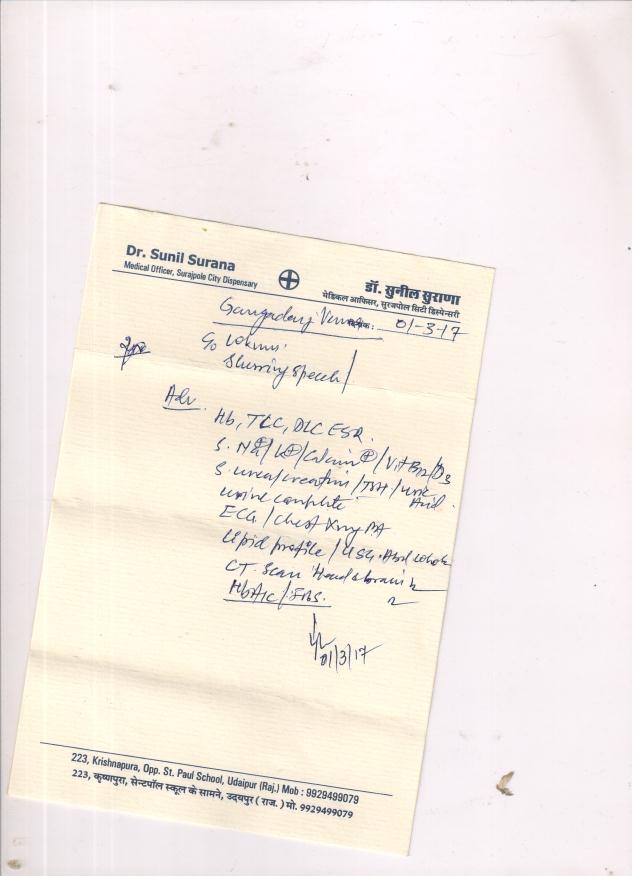 Dr. Sunil Surana
Medical Officer, Surajpole City Dispensary
डॉ. सुनील सुराणा
मेडिकल आफिसर, सुरजपोल सिटी डिस्पेन्सरी
दिनांक : 01-3-17
Slurring Speech
Adv.
Hb, TLC, DLC ESR.
S. Na⊕/K⊕/Calcium⊕/Vit B12/D3
S. urea/creatinin/TSH/Uric Acid.
Urine complete
ECG/Chest Xray PA
Lipid profile/USG. Abd whole
CT. Scan Head & brain
HbA1c/FBS.
01/3/17
223, Krishnapura, Opp. St. Paul School, Udaipur (Raj.) Mob : 9929499079
223, कृष्णपुरा, सेन्टपॉल स्कूल के सामने, उदयपुर ( राज. ) मो. 9929499079